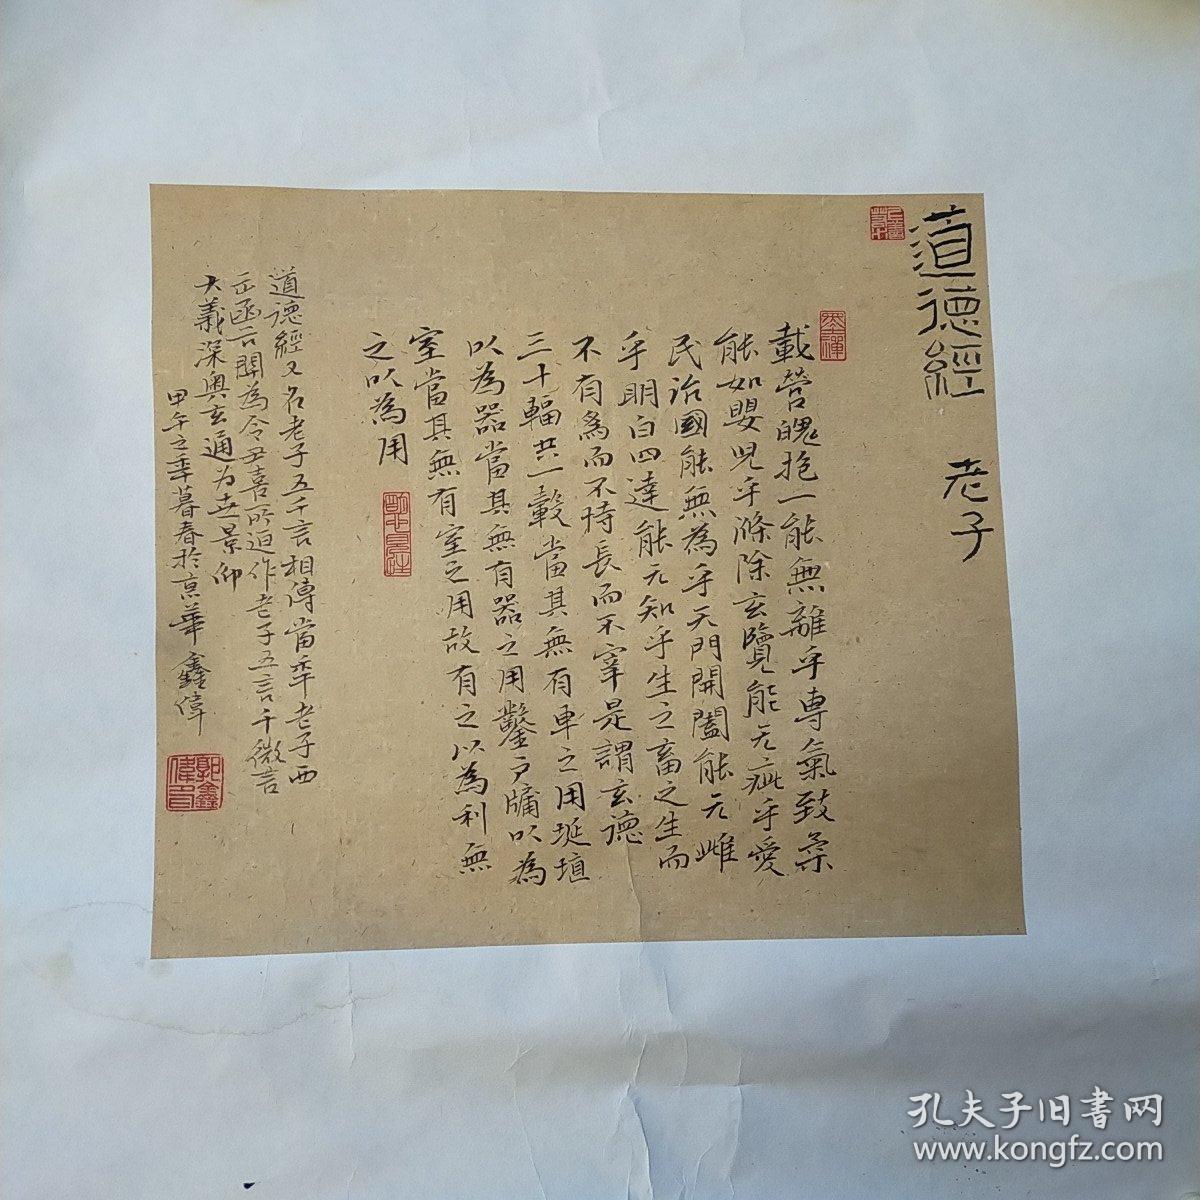 道德經 老子
載營魄抱一能無離乎專氣致柔
能如嬰兒乎滌除玄覽能无疵乎愛
民治國能無為乎天門開闔能无雌
乎明白四達能无知乎生之畜之生而
不有為而不恃長而不宰是謂玄德
三十輻共一轂當其無有車之用埏埴
以為器當其無有器之用鑿户牖以為
室當其無有室之用故有之以為利無
之以為用
道德經又名老子五千言相傳當年老子西
出函谷關為令尹喜所迫作老子五言千微言
大義深奧玄通为世景仰
甲午之年暮春於京華 鑫偉
郭鑫偉印
孔夫子旧書网
www.kongfz.com